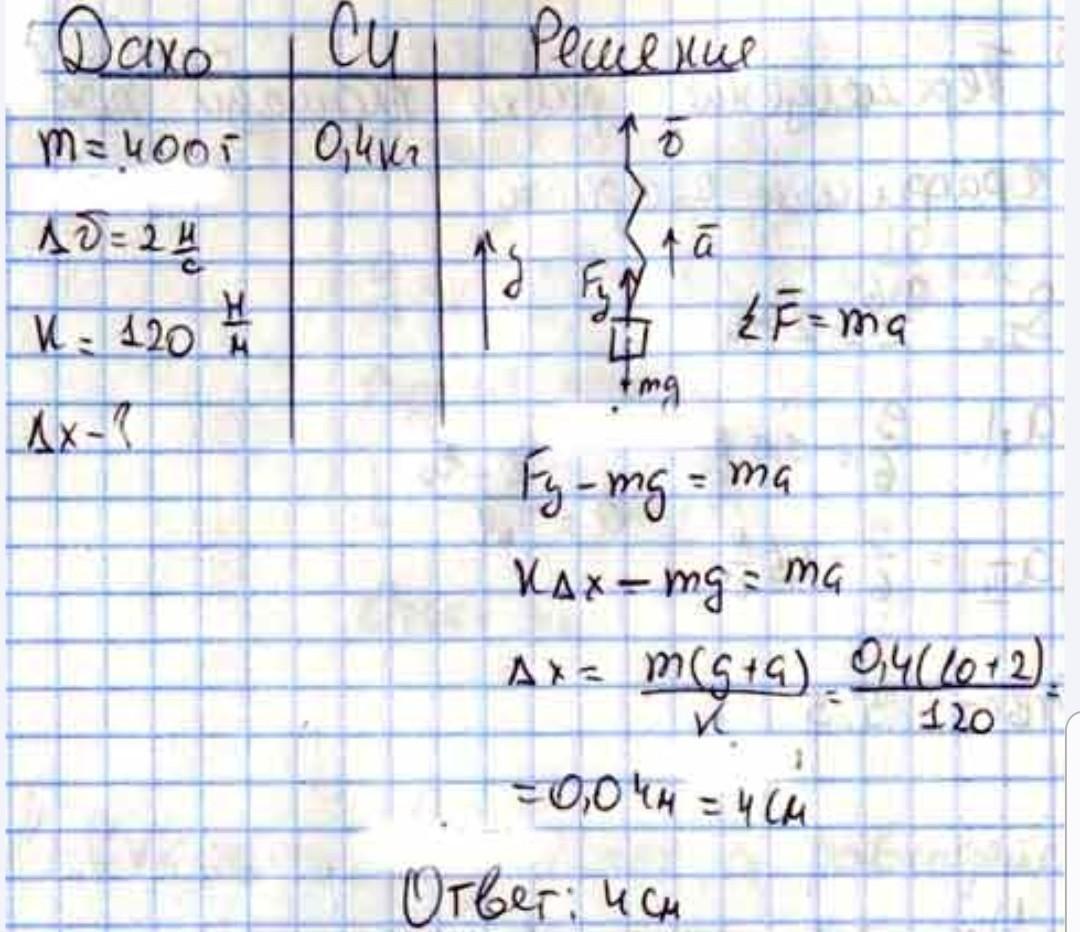 Дано СИ Решение
m = 400 г 0,4 кг
ῡ
Δῡ = 2 м/с
y
ā
Fy
K = 120 Н/м
ΣF̄ = ma
mg
Δx - ?
Fy - mg = ma
KΔx - mg = ma
Δx = m(g+a)/K = 0,4(10+2)/120 =
= 0,04м = 4 см
Ответ: 4 см